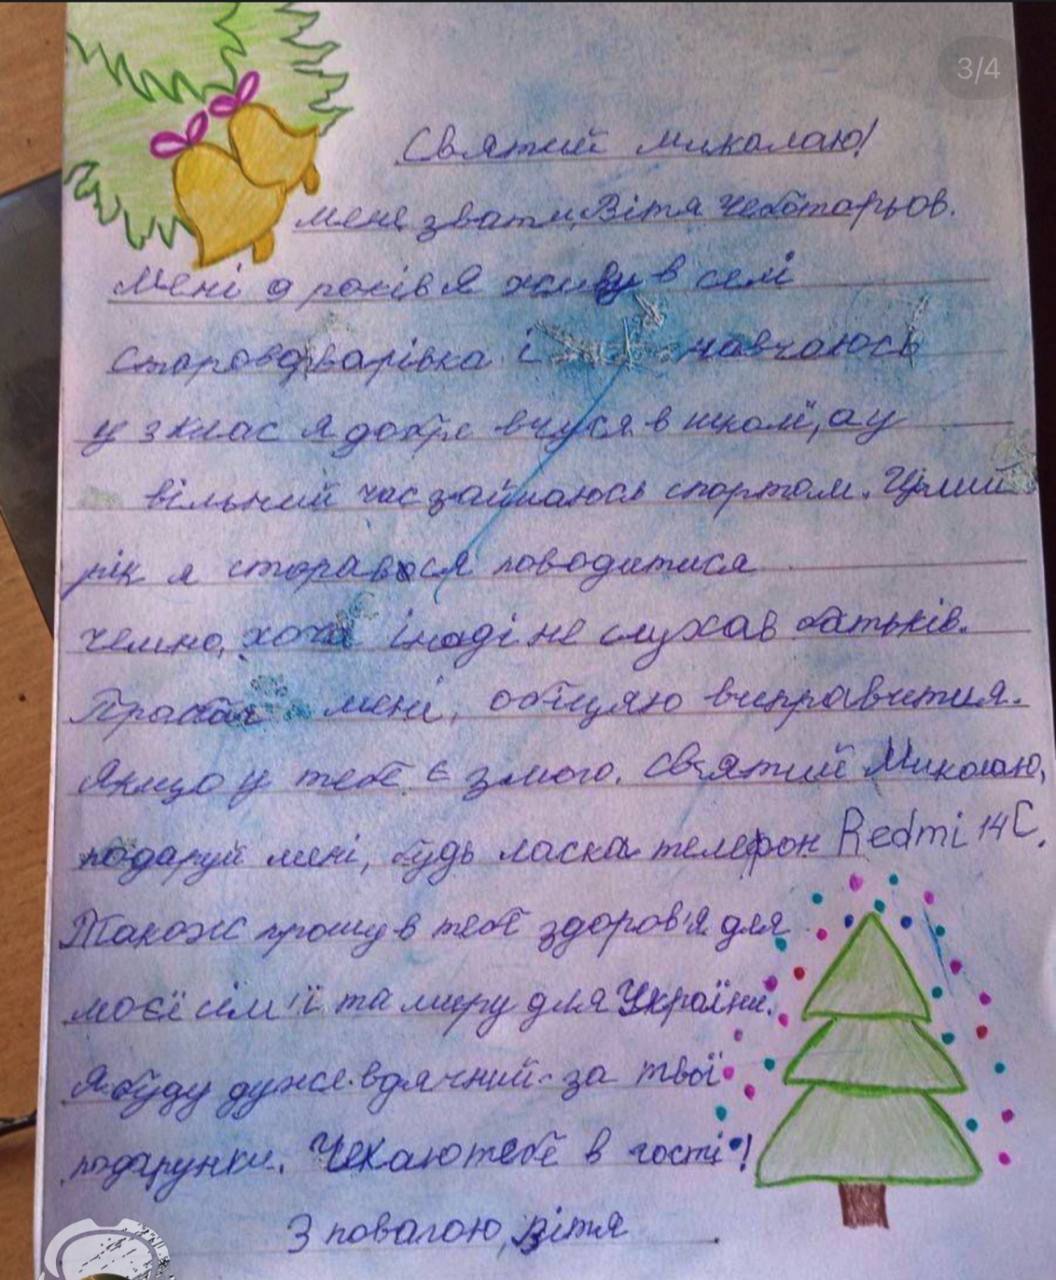 3/4
Святий Миколаю!
Мене звати Вітя Чеботарьов.
Мені 9 років я живу в селі
Старовірівка і навчаюсь
у 3 клас я добре вчуся в школі, а у
вільний час займаюсь спортом. Цілий
рік я старався поводитися
чемно, хоча іноді не слухав батьків.
мені, обіцяю виправитися.
Якщо у тебе є змога. святий Миколаю,
подаруй мені, будь ласка телефон Redmi 14C.
Також прошу в тебе здоров'я для
моєї сім'ї та миру для України.
Я буду дуже вдячний за твої
подарунки. Чекаю тебе в гості!
З повагою, Вітя